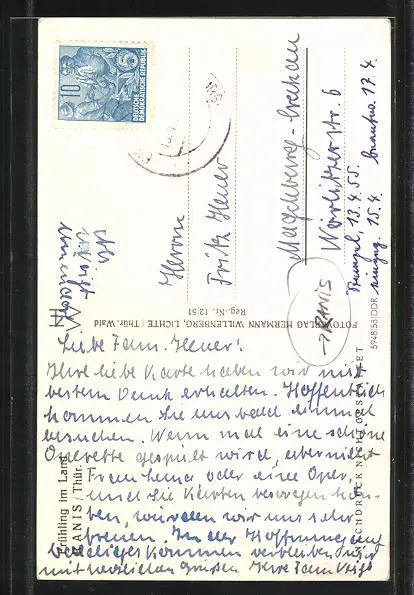 10
5
DEUTSCHE
DEMOKRATISCHE REPUBLIK
Herrn
Fritz Heuer
Magdeburg-Buckau
Wörlitzerstr. 6
Stempel, 13.4.55
15.4.
17.4.
RANIS
FOTOVERLAG HERMANN WILLENBERG, LICHTE / Thür. Wald
Reg.-Nr. 12/51
5948/53/DDR
NACHDRUCK NICHT GESTATTET
Frühling im Land
RANIS / Thür.
Liebe Fam. Heuer!
Ihre liebe Karte haben wir mit
bestem Dank erhalten. Hoffentlich
kommen Sie uns bald einmal
besuchen. Wenn mal eine schöne
Operette gespielt wird, aber nicht
Frau Luna oder eine Oper,
und Sie Karten besorgen kön-
nen, würden wir uns sehr
freuen. In der Hoffnung auf
baldiges Kommen verbleiben wir
mit herzlichen Grüßen Ihre Fam. Voigt